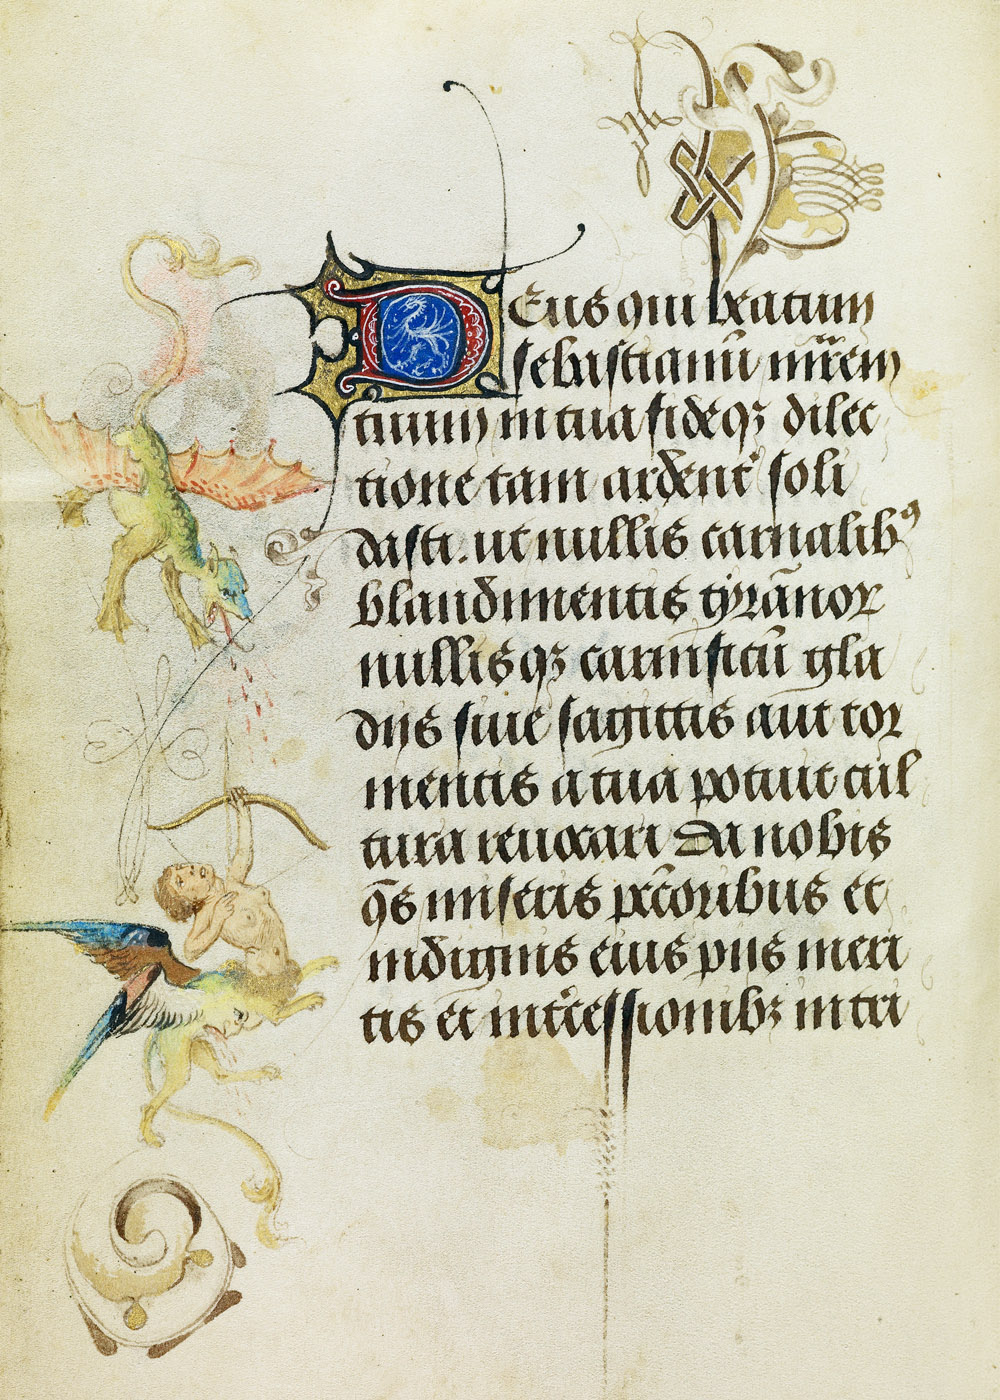 Deus qui b̄eatum
sebastianū mr̄em
tuum in tua fideqꝫ dilec
tione tam ardent̉ soli
dasti. ut nullis carnalibꝰ
blandimentis tyrānor
nullisqꝫ carnificū gla
diis siue sagittis aut tor
mentis a tua potuit cul
tura reuocari Da nobis
qs̄ miseris pctōribus et
indignis eius piis meri
tis et int̉cessionibꝫ in tri